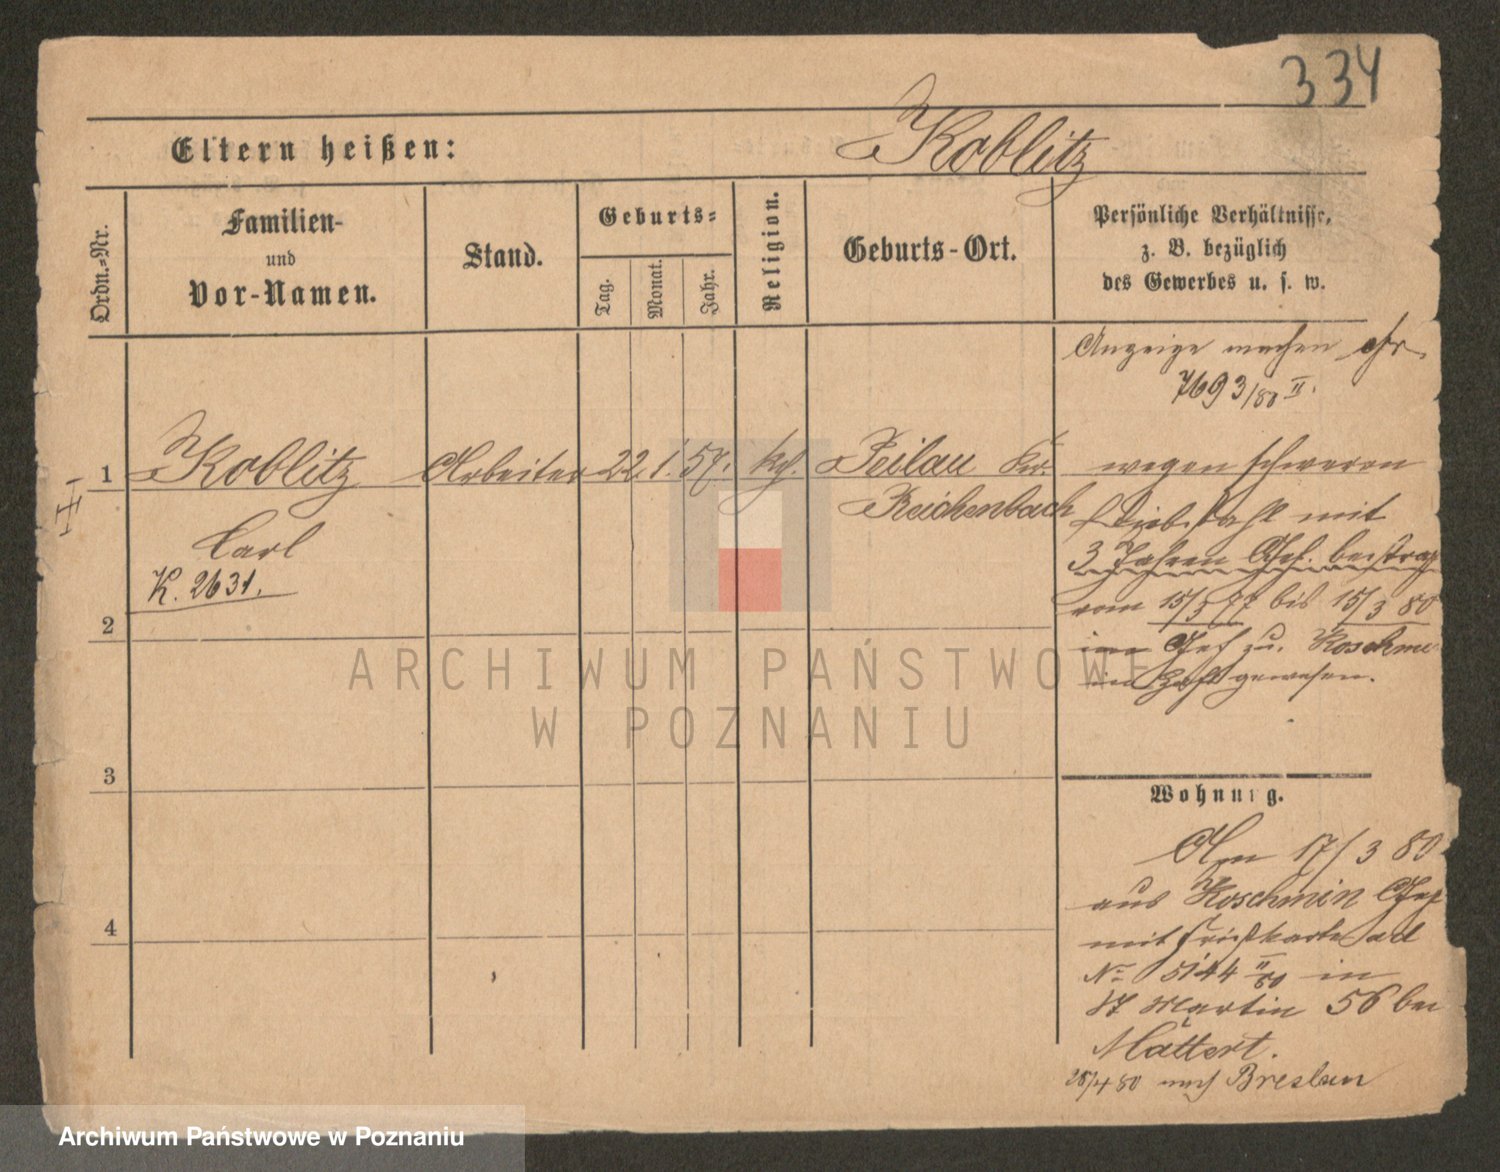 334
Eltern heißen: Koblitz
Ordn.-Nr.
Familien-
und
Vor-Namen.
Stand.
Geburts-
Tag.
Monat.
Jahr.
Religion.
Geburts-Ort.
Persönliche Verhältnisse,
z. B. bezüglich
des Gewerbes u. s. w.
Anzeige machen
7693/80 II.
1 Koblitz Arbeiter 22. 1. 57. Peilau Kr. wegen schweren
Reichenbach Diebstahl mit
Carl
3 Jahren Gef. bestraft
K. 2631.
vom 15/3 77 bis 15/3 80
2
im Gef zu Koschmin
in Haft gewesen.
ARCHIWUM PAŃSTWOWE
W POZNANIU
3
Wohnung.
Am 17/3 80
aus Koschmin Gef
4
mit ad
No 5144 II/80 in
St Martin 56 bei
Mättert.
28/4 80 nach Breslau
Archiwum Państwowe w Poznaniu